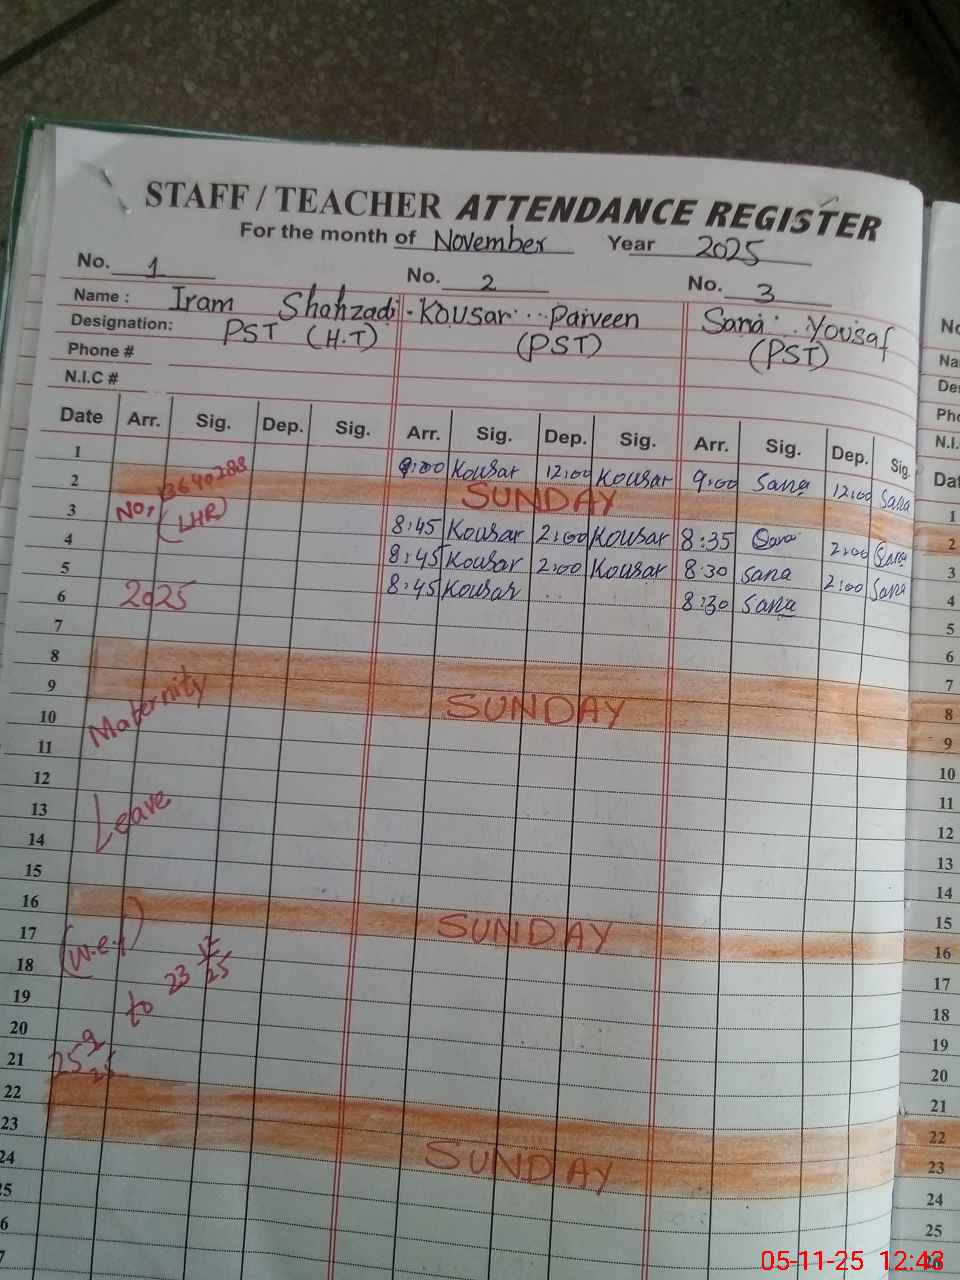 STAFF / TEACHER ATTENDANCE REGISTER
For the month of November Year 2025
No. 1 No. 2 No. 3
Name : Iram Shahzadi Kousar Parveen Sana Yousaf
Designation: PST (H.T) (PST) (PST)
Phone #
N.I.C #
Date Arr. Sig. Dep. Sig. Arr. Sig. Dep. Sig. Arr. Sig. Dep. Sig.
1 9:00 Kousar 12:00 Kousar 9:00 Sana 12:00 Sana
2 SUNDAY
3 8:45 Kousar 2:00 Kousar 8:35 Sana 2:00 Sana
4 8:45 Kousar 2:00 Kousar 8:30 Sana 2:00 Sana
5 8:45 Kousar 8:30 Sana
6
7
8
9 SUNDAY
10
11
12
13
14
15
16 SUNDAY
17
18
19
20
21
22
23 SUNDAY
24
25
6
7
No, 13640288
(LHR)
2025
Maternity
Leave
(w.e.f)
25 9 25
to
23
25
No
Na
De
Pho
N.I.
Dat
1
2
3
4
5
6
7
8
9
10
11
12
13
14
15
16
17
18
19
20
21
22
23
24
25
05-11-25 12:43